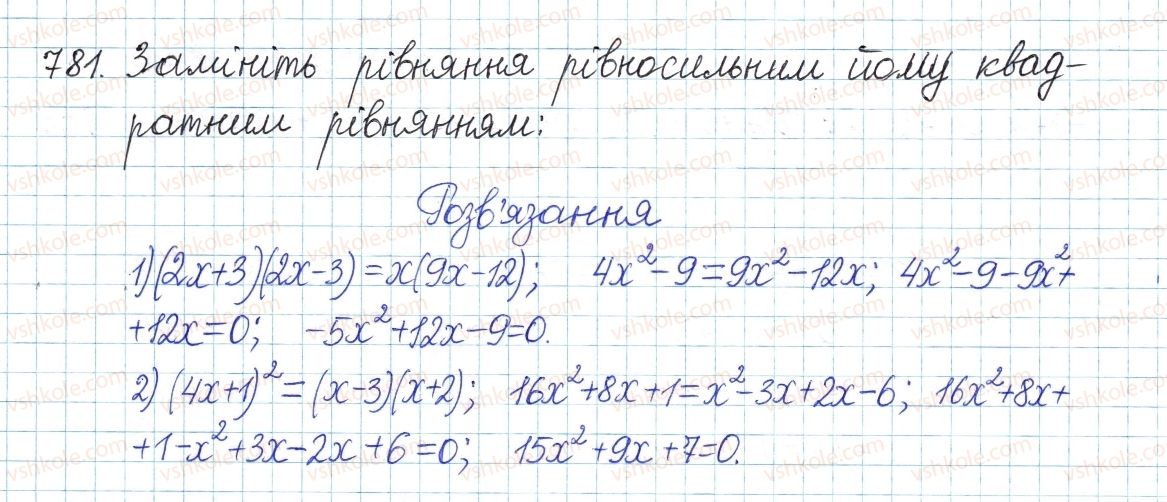 781. Замініть рівняння рівносильним йому квад-
ратним рівнянням:
Розв'язання
1) (2x+3)(2x-3)=x(9x-12); 4x²-9=9x²-12x; 4x²-9-9x²+
+12x=0; -5x²+12x-9=0.
2) (4x+1)²=(x-3)(x+2); 16x²+8x+1=x²-3x+2x-6; 16x²+8x+
+1-x²+3x-2x+6=0; 15x²+9x+7=0.